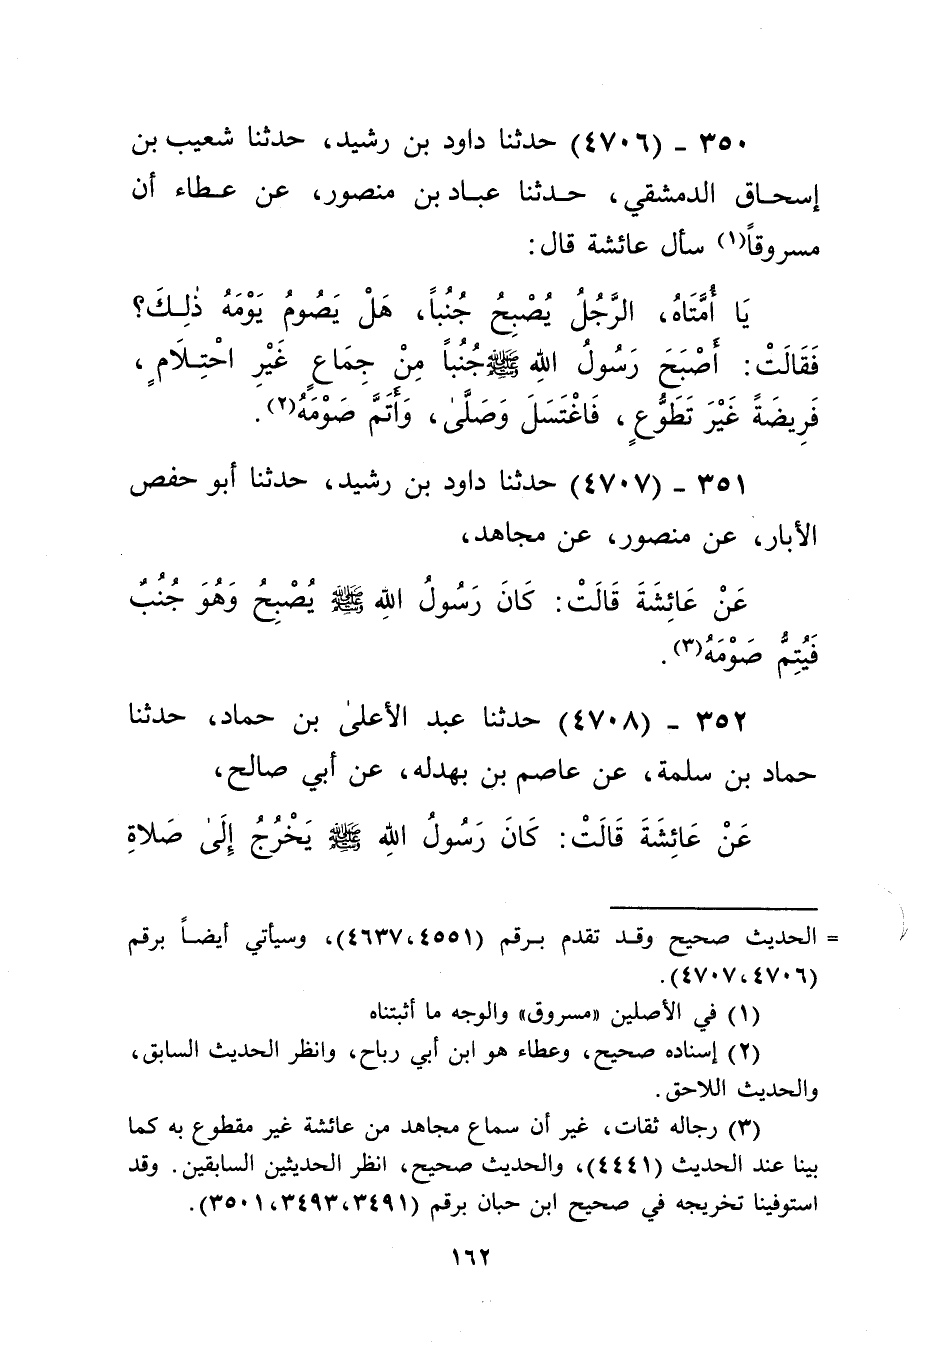 ٣٥٠ ـ (٤٧٠٦) حدثنا داود بن رشيد، حدثنا شعيب بن
إسحاق الدمشقي، حدثنا عباد بن منصور، عن عطاء أن
مسروقاً(١) سأل عائشة قال:
يَا أُمَّتَاهُ، الرَّجُلُ يُصْبِحُ جُنُباً، هَلْ يَصُومُ يَوْمَهُ ذٰلِكَ؟
فَقَالَتْ: أَصْبَحَ رَسُولُ اللهِ ﷺ جُنُباً مِنْ جِمَاعٍ غَيْرِ احْتِلَامٍ،
فَرِيضَةً غَيْرَ تَطَوُّعٍ، فَاغْتَسَلَ وَصَلَّىٰ، وَأَتَمَّ صَوْمَهُ(٢).
٣٥١ ـ (٤٧٠٧) حدثنا داود بن رشيد، حدثنا أبو حفص
الأبار، عن منصور، عن مجاهد،
عَنْ عَائِشَةَ قَالَتْ: كَانَ رَسُولُ اللهِ ﷺ يُصْبِحُ وَهُوَ جُنُبٌ
فَيُتِمُّ صَوْمَهُ(٣).
٣٥٢ ـ (٤٧٠٨) حدثنا عبد الأعلىٰ بن حماد، حدثنا
حماد بن سلمة، عن عاصم بن بهدله، عن أبي صالح،
عَنْ عَائِشَةَ قَالَتْ: كَانَ رَسُولُ اللهِ ﷺ يَخْرُجُ إِلَىٰ صَلاةِ
= الحديث صحيح وقد تقدم برقم (٤٥٥١، ٤٦٣٧)، وسيأتي أيضاً برقم
(٤٧٠٦، ٤٧٠٧).
(١) في الأصلين «مسروق» والوجه ما أثبتناه
(٢) إسناده صحيح، وعطاء هو ابن أبي رباح، وانظر الحديث السابق،
والحديث اللاحق.
(٣) رجاله ثقات، غير أن سماع مجاهد من عائشة غير مقطوع به كما
بينا عند الحديث (٤٤٤١)، والحديث صحيح، انظر الحديثين السابقين. وقد
استوفينا تخريجه في صحيح ابن حبان برقم (٣٤٩١، ٣٤٩٣، ٣٥٠١).
١٦٢